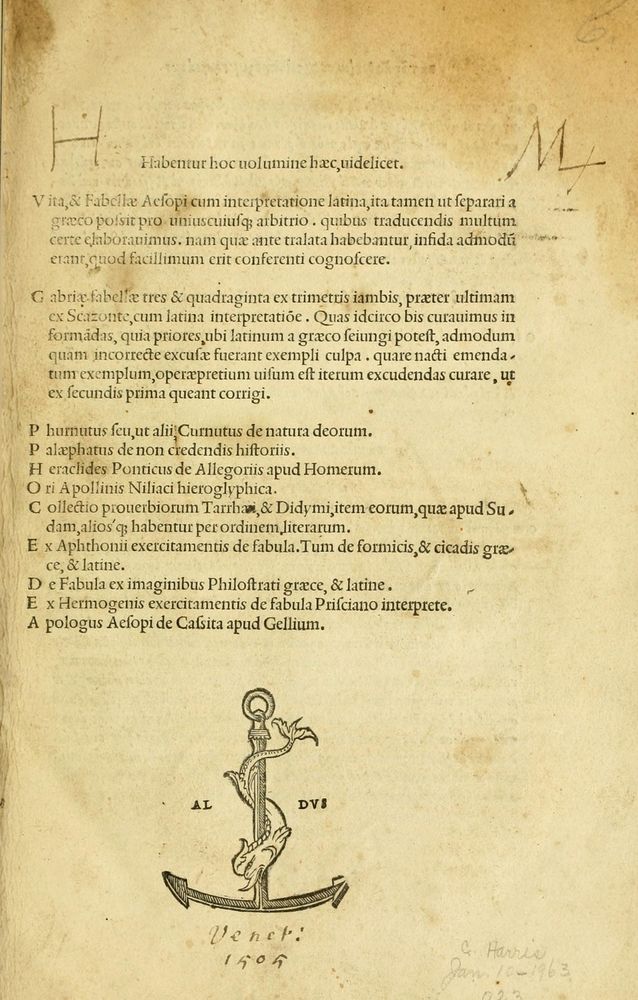 6.
H
M
Habentur hoc uolumine hæc,uidelicet.
Vita,& Fabellæ Aeſopi cum interpretatione latina,ita tamen ut ſeparari a
græco poſsit pro uniuscuiuſq; arbitrio . quibus traducendis multum
certe elaborauimus. nam quæ ante tralata habebantur,infida admodũ
erant,quod facillimum erit conferenti cognoſcere.
Gabriæ fabellæ tres & quadraginta ex trimetris iambis, præter ultimam
ex Scazonte,cum latina interpretatiõe . Quas idcirco bis curauimus in
formãdas, quia priores,ubi latinum a græco ſeiungi poteſt, admodum
quam incorrecte excuſæ fuerant exempli culpa . quare nacti emenda-
tum exemplum,operæpretium uiſum eſt iterum excudendas curare, ut
ex ſecundis prima queant corrigi.
Phurnutus ſeu,ut alii,Curnutus de natura deorum.
Palæphatus de non credendis hiſtoriis.
Heraclides Ponticus de Allegoriis apud Homerum.
Ori Apollinis Niliaci hieroglyphica.
Collectio prouerbiorum Tarrhæi,& Didymi,item eorum,quæ apud Su-
dam,alios'q; habentur per ordinem literarum.
Ex Aphthonii exercitamentis de fabula.Tum de formicis,& cicadis græ-
ce, & latine.
De Fabula ex imaginibus Philoſtrati græce, & latine .
Ex Hermogenis exercitamentis de fabula Priſciano interprete.
Apologus Aeſopi de Caſsita apud Gellium.
AL DVS
Venet:
1505
G. Harris
Jan. 10-1963